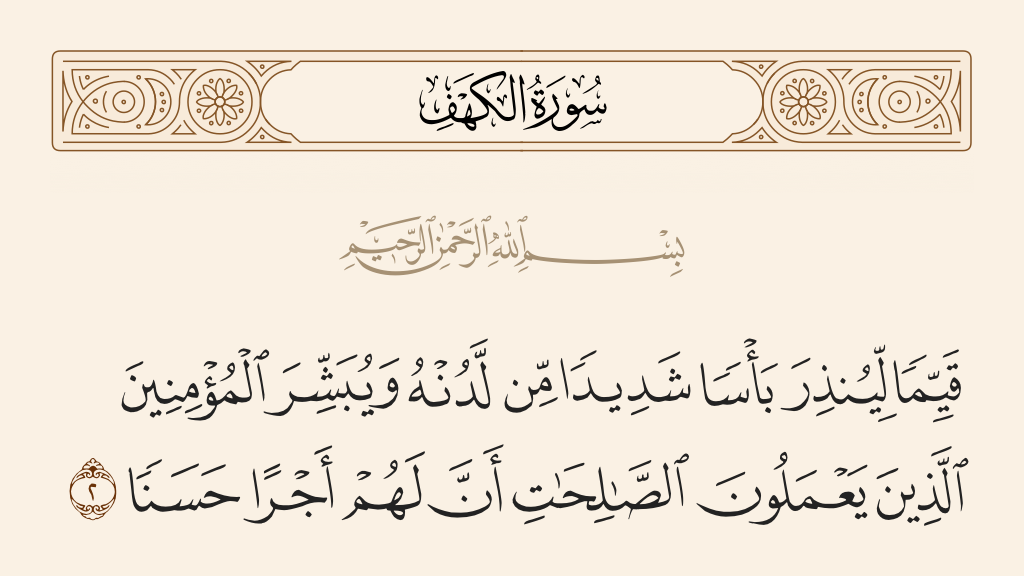 سُورَةُ الْكَهْفِ
بِسْمِ ٱللَّهِ ٱلرَّحْمَٰنِ ٱلرَّحِيمِ
قَيِّمًا لِّيُنذِرَ بَأْسًا شَدِيدًا مِّن لَّدُنْهُ وَيُبَشِّرَ ٱلْمُؤْمِنِينَ
ٱلَّذِينَ يَعْمَلُونَ ٱلصَّٰلِحَٰتِ أَنَّ لَهُمْ أَجْرًا حَسَنًا ٢